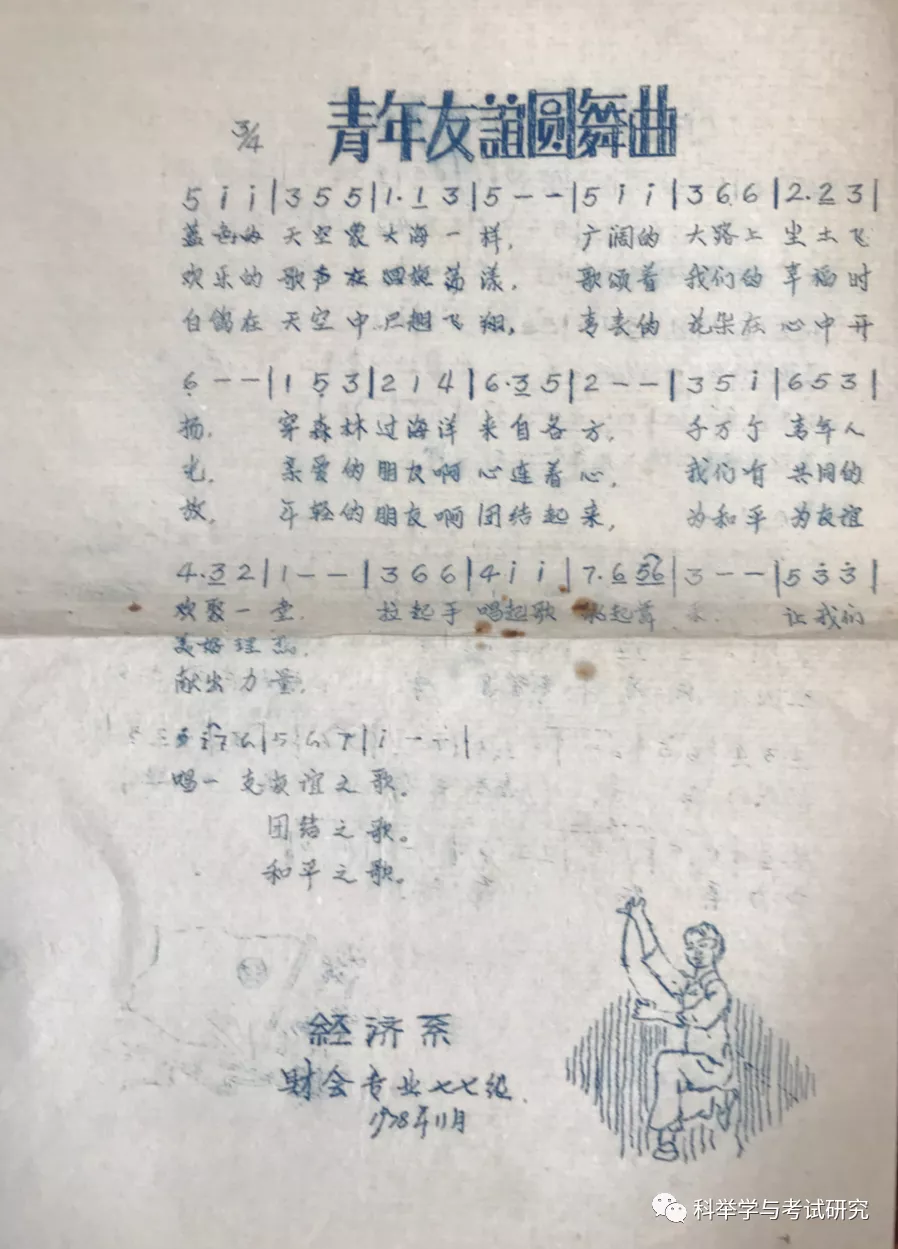 青年友誼圆舞曲
3/4
5 i i | 3 5 5 | 1· 1 3 | 5 - - | 5 i i | 3 6 6 | 2· 2 3 |
蓝色的 天空象大海一样， 广阔的 大路上 尘土飞
欢乐的 歌声在四处荡漾， 歌颂着 我们的 幸福时
白鸽在 天空中 飞翔， 青春的 花朵在 心中开
6 - - | 1 5 3 | 2 1 4 | 6· 3 5 | 2 - - | 3 5 i | 6 5 3 |
扬， 穿森林过海洋 来自各方， 千万个 青年人
光， 亲爱的朋友啊 心连着心， 我们有 共同的
放， 年轻的朋友啊 团结起来， 为和平 为友谊
4· 3 2 | 1 - - | 3 6 6 | 4 i i | 7· 6 56 | 3 - - | 5 3 3 |
欢聚一堂． 拉起手 唱起歌 起舞 让我们
美好理想．
献出力量．
6 | 5 6 7 | i - - |
唱一支友谊之歌。
团结之歌。
和平之歌。
経济系
财会专业七七级．
1978年11月
科举学与考试研究